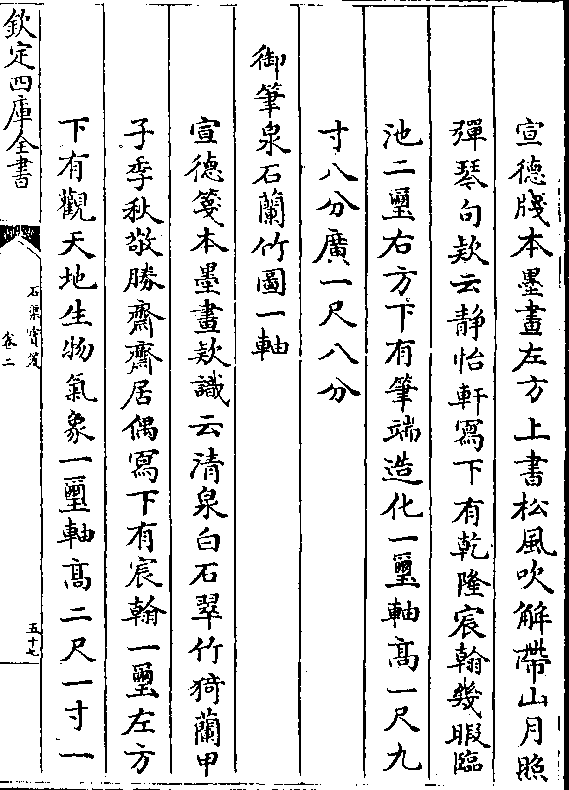 宣德牋本墨畫左方上書松風吹解帶山月照
彈琴句欵云静怡軒寫下有乾隆宸翰幾暇臨
池二璽右方下有筆端造化一璽軸髙一尺九
寸八分廣一尺八分
御筆泉石蘭竹圖一軸
宣德箋本墨畫欵識云清泉白石翠竹猗蘭甲
子季秋敬勝齋齋居偶寫下有宸翰一璽左方
下有觀天地生物氣象一璽軸髙二尺一寸一
欽定四庫全書
石渠寳笈
卷二
五十七